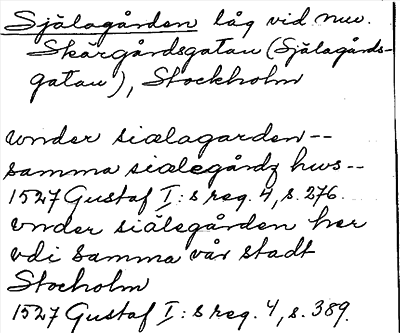 Själagården låg vid nuv.
Skärgårdsgatan (Själagårds-
gatan), Stockholm
vnder siælagarden--
samma siælegårdz hws--
1527 Gustaf I:s reg. 4, s. 276.
vnder siälegården her
vdi samma vår stadt
Stocholm
1527 Gustaf I:s reg. 4, s. 389.